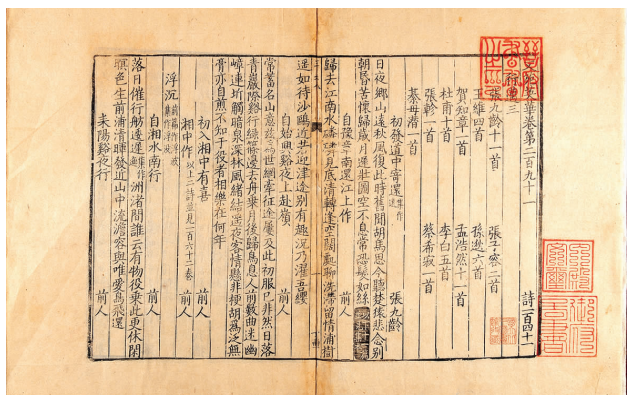 文苑英華卷第二百九十一 詩一百四十一
行邁三
張九齡十一首 張子容二首
王維四首 孫逖六首
賀知章一首 孟浩然十一首
杜甫十首 李白五首
張軫一首 蔡希寂一首
綦毋潛一首
初發道中寄遠 張九齡
日夜鄉山遠秋風復此時舊聞胡馬思今聽楚猿悲念別
朝昏苦懷歸歲月遲壯圖空不息常恐髮如絲
自豫章南還江上作 前人
歸去江南水磷磷見底清轉逢空闊處聊洗滯留情浦樹
遥如待沙鷗近共迎津途別有趣況乃濯吾纓
自始興谿夜上赴嶺 前人
嘗蓄名山意茲爲世網牽征途屢及此初服已非然日落
青巖際谿行綠篠邊去舟乘月後歸鳥息人前數曲迷幽
嶂連圻觸暗泉深林風緒結遥夜客情懸非梗胡爲泛無
膏亦自煎不知于役者相樂在何年
初入湘中有喜
湘中作 以上二詩並見一百六十二卷
浮沉
自湘水南行 前人
落日催行舫逶迤洲渚間誰云有物役乘此更休閑
暝色生前浦清暉發近山中流澹容與唯愛鳥飛還
耒陽谿夜行 前人